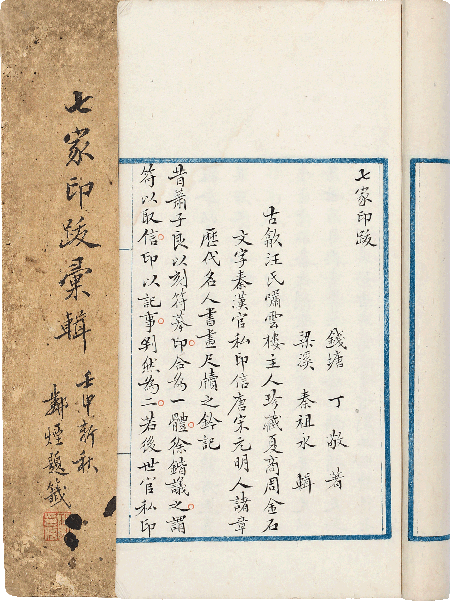 七家印跋彙輯
壬申新秋
鄰煙題籤
七家印跋
錢塘 丁敬 著
梁溪 秦祖永 輯
古歙汪氏嘯雲樓主人珍藏夏商周金石
文字秦漢官私印信唐宋元明人諸章
歷代名人書畫尺牘之鈐記
昔蕭子良以刻符摹印合為一體徐鍇議之謂
符以取信印以記事判然為二若後世官私印